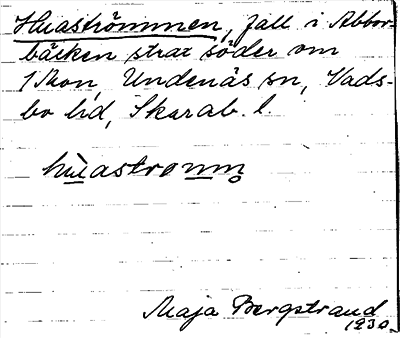 Huaströmmen, fall i Abbor-
bäcken strax söder om
Undenäs sn, Vads-
bo hd, Skarab. l.
huastromm
Maja Bergstrand
1930.